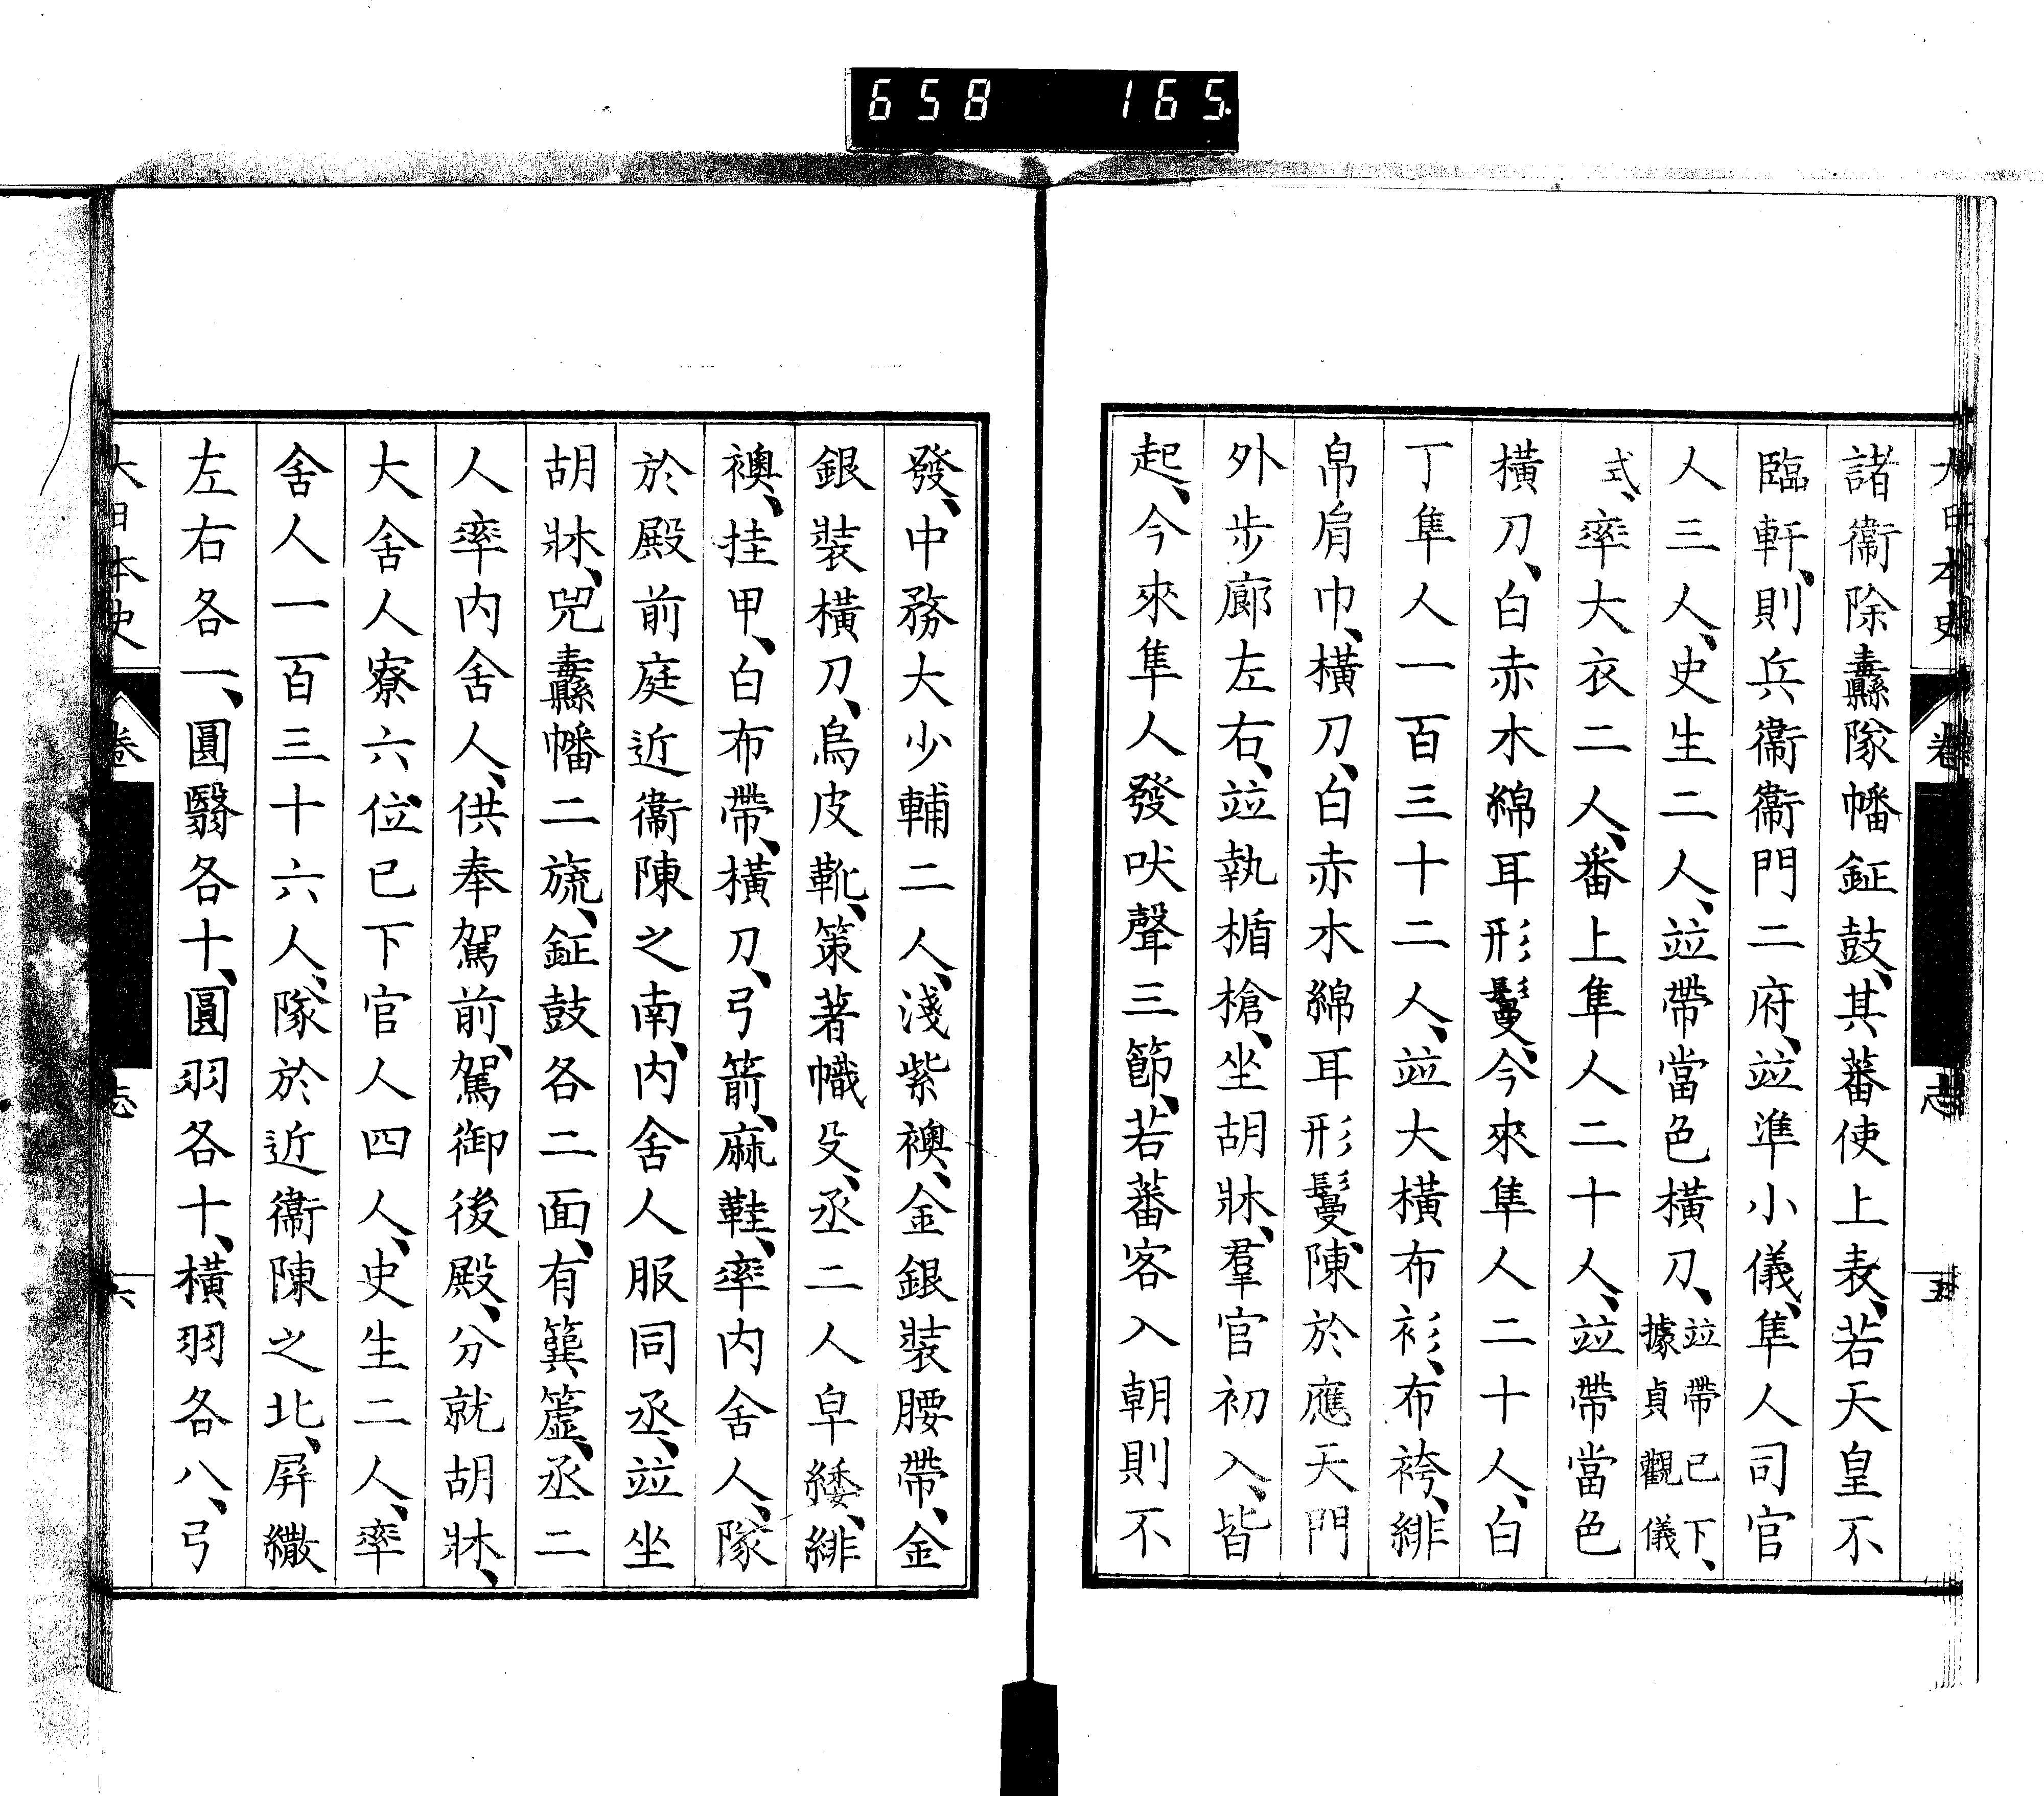 658 165
大日本史 卷 志 五
諸衞除纛隊幡鉦鼓、其蕃使上表、若天皇不
臨軒、則兵衞衞門二府、竝準小儀、隼人司官
人三人、史生二人、竝帶當色橫刀、竝帶已下、據貞觀儀
式、率大衣二人、番上隼人二十人、竝帶當色
橫刀、白赤木綿耳形鬘、今來隼人二十人、白
丁隼人一百三十二人、竝大橫布衫、布袴、緋
帛肩巾、橫刀、白赤木綿耳形鬘、陳於應天門
外步廊左右、竝執楯槍、坐胡牀、羣官初入、皆
起、今來隼人發吠聲三節、若蕃客入朝則不
發、中務大少輔二人、淺紫襖、金銀裝腰帶、金
銀裝橫刀、烏皮靴、策著幟殳、丞二人皁緌、緋
襖、挂甲、白布帶、橫刀、弓箭、麻鞋、率内舍人、隊
於殿前庭近衞陳之南、内舍人服同丞、竝坐
胡牀、兕纛幡二旒、鉦鼓各二面、有簨簴、丞二
人率内舍人、供奉駕前、駕御後殿、分就胡牀、
大舍人寮六位已下官人四人、史生二人、率
舍人一百三十六人、隊於近衞陳之北、屏繖
左右各一、圓翳各十、圓羽各十、橫羽各八、弓
大日本史 卷 志 六